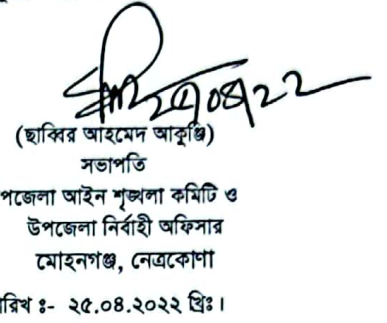 ২৫/০৪/২২
(ছাব্বির আহমেদ আকুঞ্জি)
সভাপতি
পজেলা আইন শৃঙ্খলা কমিটি ও
উপজেলা নির্বাহী অফিসার
মোহনগঞ্জ, নেত্রকোণা
রিখ ঃ- ২৫.০৪.২০২২ খ্রিঃ।